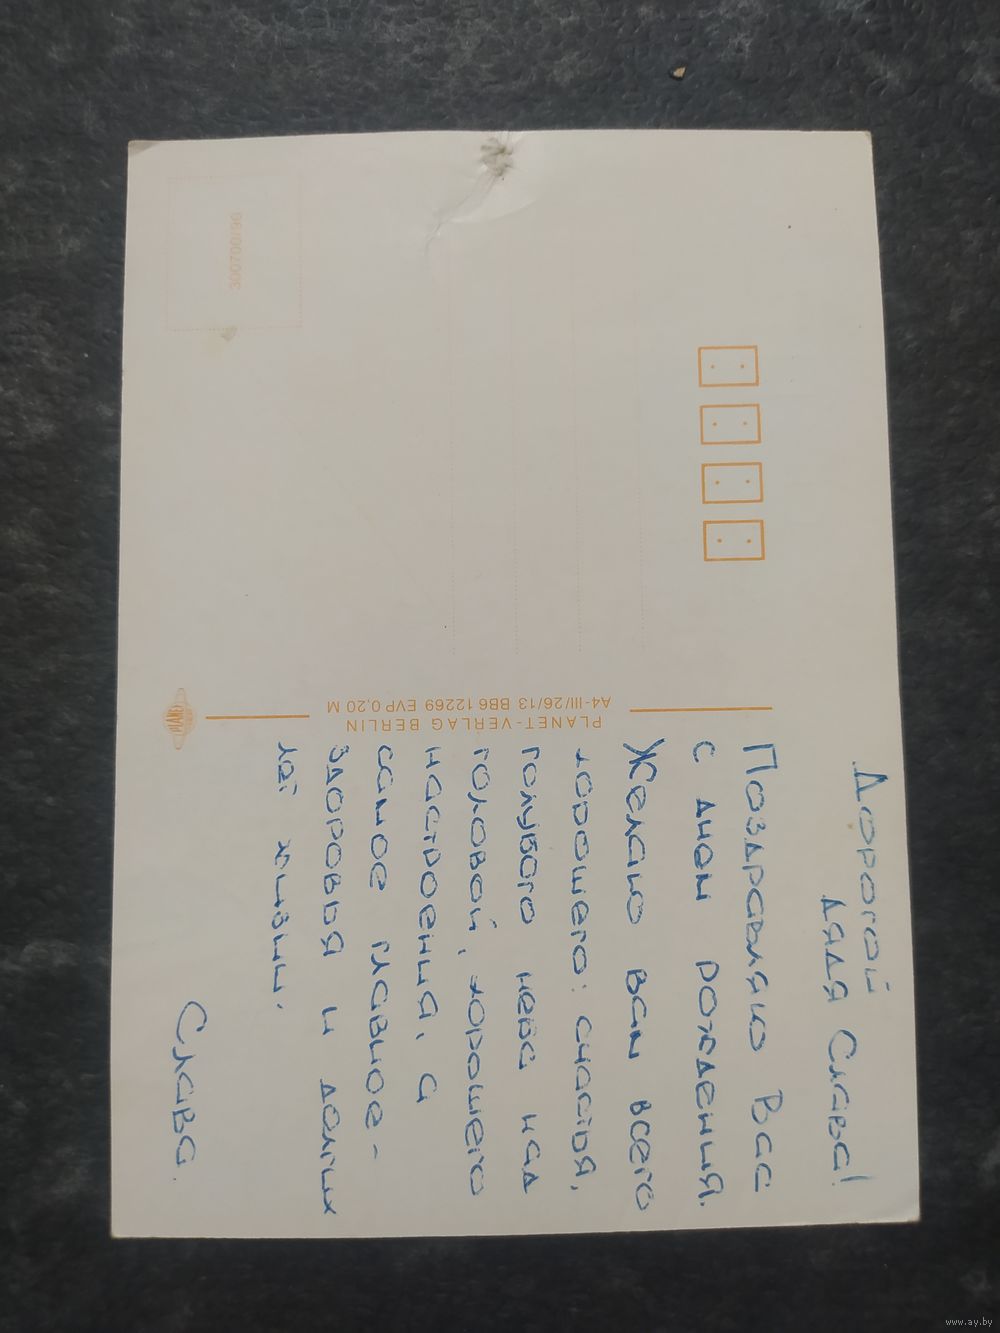 Дорогой
дядя Слава!
Поздравляю Вас
с днем рождения.
Желаю вам всего
хорошего: счастья,
голубого неба над
головой, хорошего
настроения, а
самое главное -
здоровья и долгих
лет жизни.
Слава.
PLANET-VERLAG BERLIN
A4-III/26/13 BB6 12269 EVP 0,20 M
PLANET
300700/96
www.ay.by